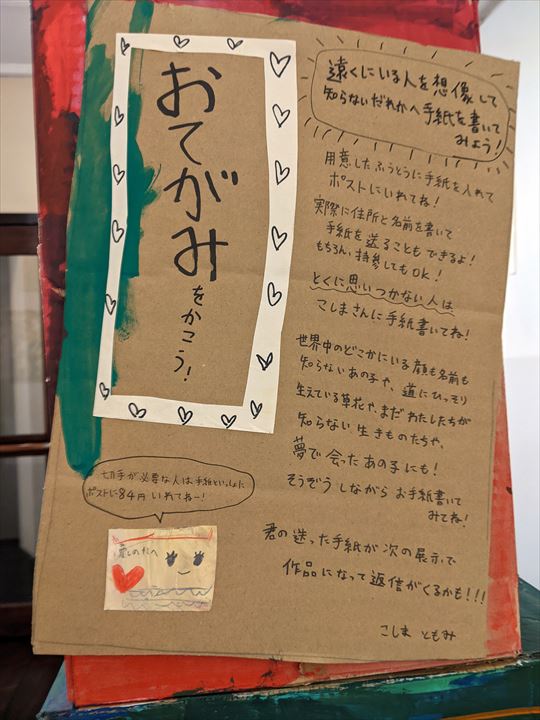 おてがみをかこう!
遠くにいる人を想像して
知らないだれかへ手紙を書いて
みよう!
用意したふうとうに手紙を入れて
ポストにいれてね!
実際に住所と名前を書いて
手紙を送ることもできるよ!
もちろん、持参してもOK!
とくに思いつかない人は
こしまさんに手紙書いてね!
世界中のどこかにいる顔も名前も
知らないあの子や、道にひっそり
生えている草花や、まだわたしたちが
知らない生きものたちや、
夢で会ったあの子にも!
そうぞうしながらお手紙書いて
みてね!
君の送った手紙が次の展示で
作品になって返信がくるかも!!!
こしま ともみ
切手が必要な人は手紙といっしょに
ポストに84円いれてねー!